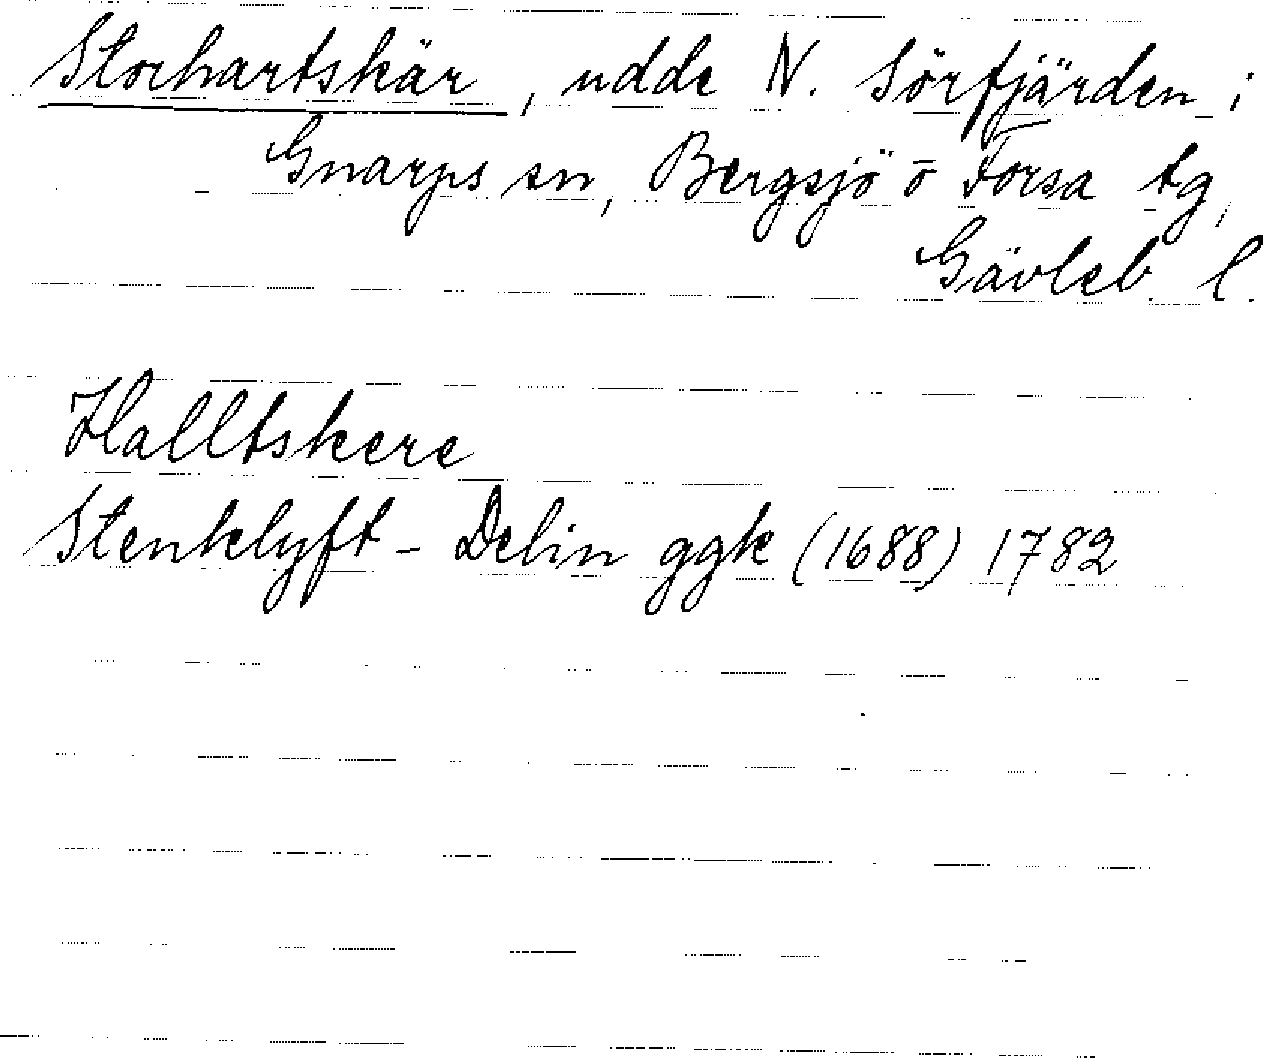 Storhartskär, udde N. Sörfjärden i
Gnarps sn, Bergsjö o Forsa tg,
Gävleb. l.
Halltskere
Stenklyft - Delin ggk (1688) 1782